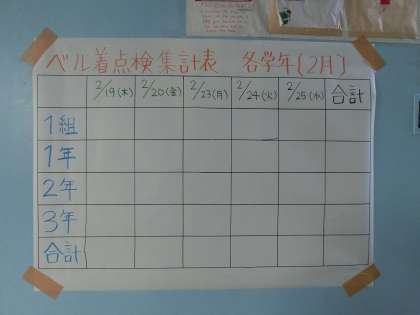 ベル着点検集計表 各学年〔2月〕
2/19(木) 2/20(金) 2/23(月) 2/24(火) 2/25(水) 合計
1組
1年
2年
3年
合計